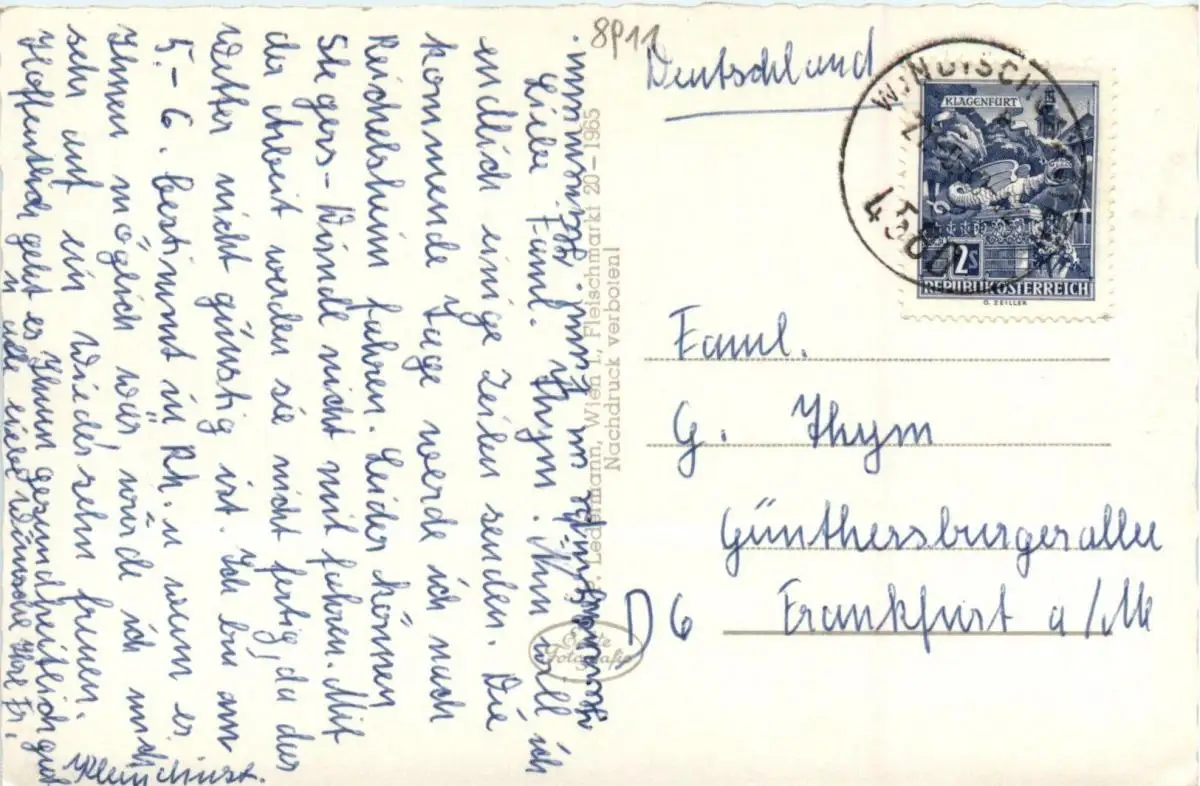 8P11
Deutschland
WINDISCH
4580
KLAGENFURT
2s
REPUBLIK ÖSTERREICH
G. ZEILLER
Faml.
G. Thym
Güntherburgerallee
D 6 Frankfurt a/M
Ledermann, Wien I., Fleischmarkt 20-1965
Nachdruck verboten!
Echte Fotografie
Liebe Faml. Thym. Nun will ich
endlich einige Zeilen senden. Die
kommende Tage werde ich nach
Reichelsheim fahren. Leider können
Stegers- nicht mit fahren. Mit
der Arbeit werden sie nicht fertig, da das
Wetter nicht günstig ist. Ich bin am
5.-6. bestimmt in Rh. u wenn es
Ihnen möglich wär, würde ich mich
sehr auf ein Wiedersehn freuen.
Hoffentlich geht es Ihnen gesundheitlich gut
u alle liebe Wünsche Ihre Fr.
an Faml.